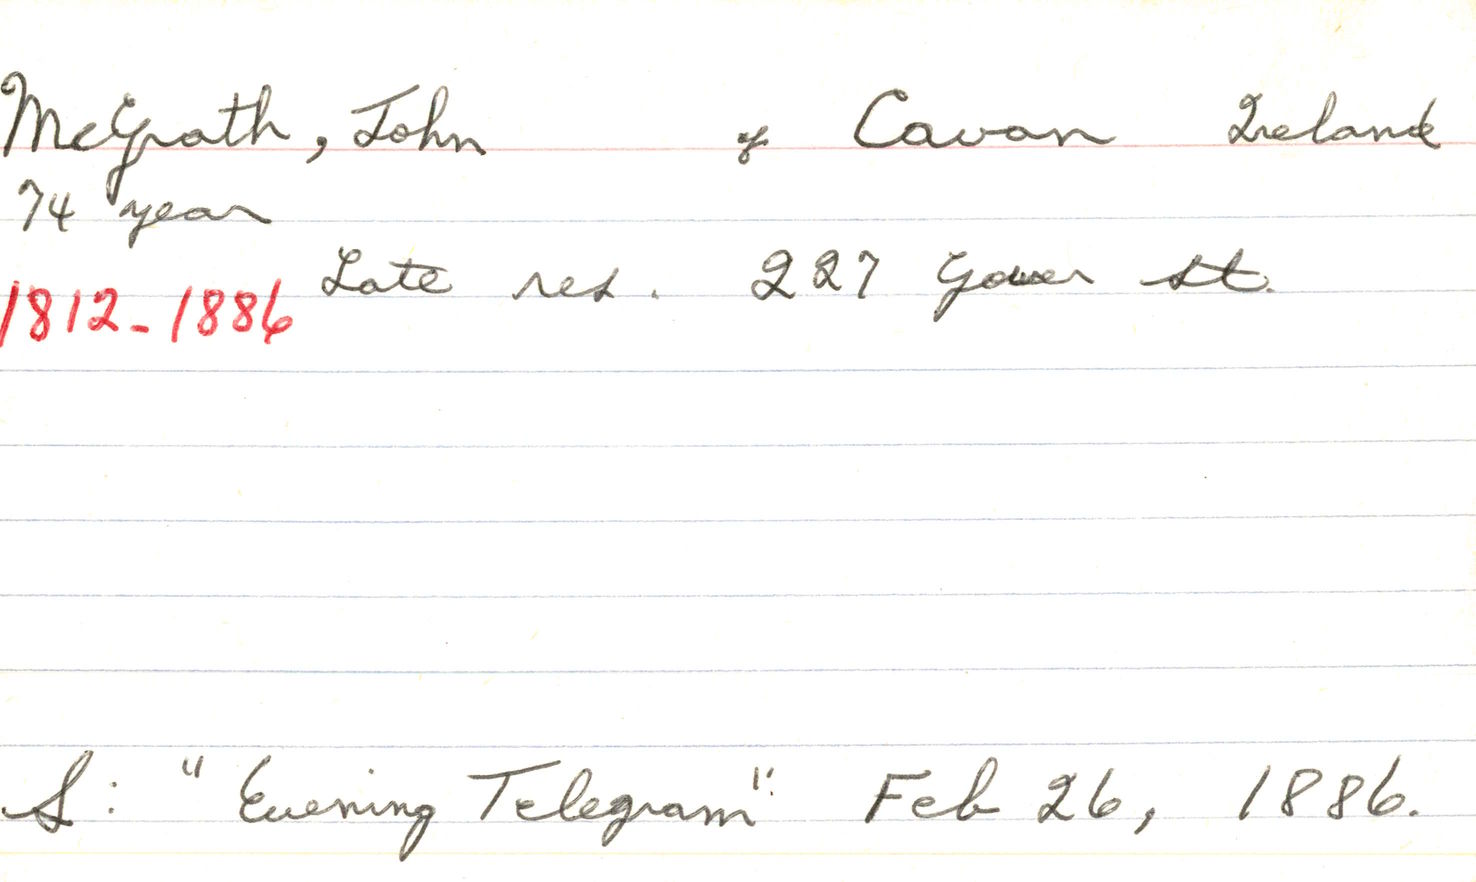 McGrath, John of Cavan Ireland
74 year
Late res. 227 Gower St.
1812-1886
S: "Evening Telegram" Feb 26, 1886.